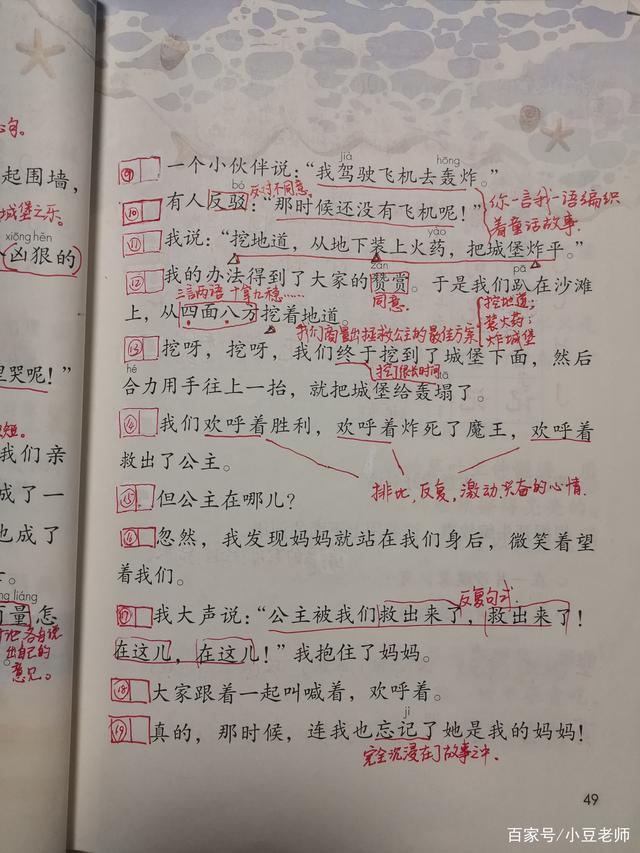 起围墙，
城堡之乐。
xiōng hěn
凶狠的
里哭呢！”
我们亲
成了一
也成了
ng liáng
商量怎
各自说
出自己的
意见。
jià hōng
⑨ 一个小伙伴说：“我驾驶飞机去轰炸。”
bó 反对不同意。
⑩ 有人反驳：“那时候还没有飞机呢！”
你一言我一语编织
着童话故事。
yào
⑪ 我说：“挖地道，从地下装上火药，把城堡炸平。”
zàn pā
⑫ 我的办法得到了大家的赞赏。于是我们趴在沙滩
三言两语 十拿九稳…… 同意。
上，从四面八方挖着地道。
挖地道；
装火药；
炸城堡
我们商量出拯救公主的最佳方案
⑬ 挖呀，挖呀，我们终于挖到了城堡下面，然后
hé 挖了很长时间。
合力用手往上一抬，就把城堡给轰塌了。
⑭ 我们欢呼着胜利，欢呼着炸死了魔王，欢呼着
救出了公主。
排比，反复，激动、兴奋的心情.
⑮ 但公主在哪儿？
忽然，我发现妈妈就站在我们身后，微笑着望
着我们。
反复句式.
⑰ 我大声说：“公主被我们救出来了，救出来了！
在这儿，在这儿！”我抱住了妈妈。
⑱ 大家跟着一起叫喊着，欢呼着。
jì
⑲ 真的，那时候，连我也忘记了她是我的妈妈！
完全沉浸在了故事之中.
49
百家号/小豆老师